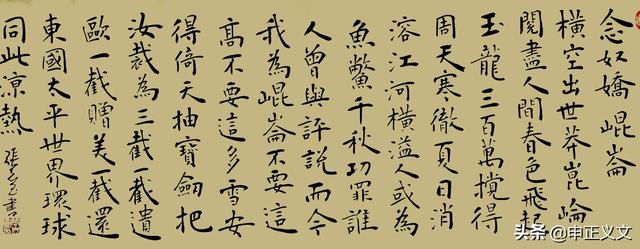 念奴嬌 崐崙
橫空出世莽崑崙
閱盡人間春色飛起
玉龍三百萬攪得
周天寒徹夏日消
溶江河橫溢人或為
魚鱉千秋功罪誰
人曾與評說而今
我為崐崙不要這
高不要這多雪安
得倚天抽寶劍把
汝裁為三截一截遺
歐一截贈美一截還
東國太平世界環球
同此涼熱
头条 @申正义文